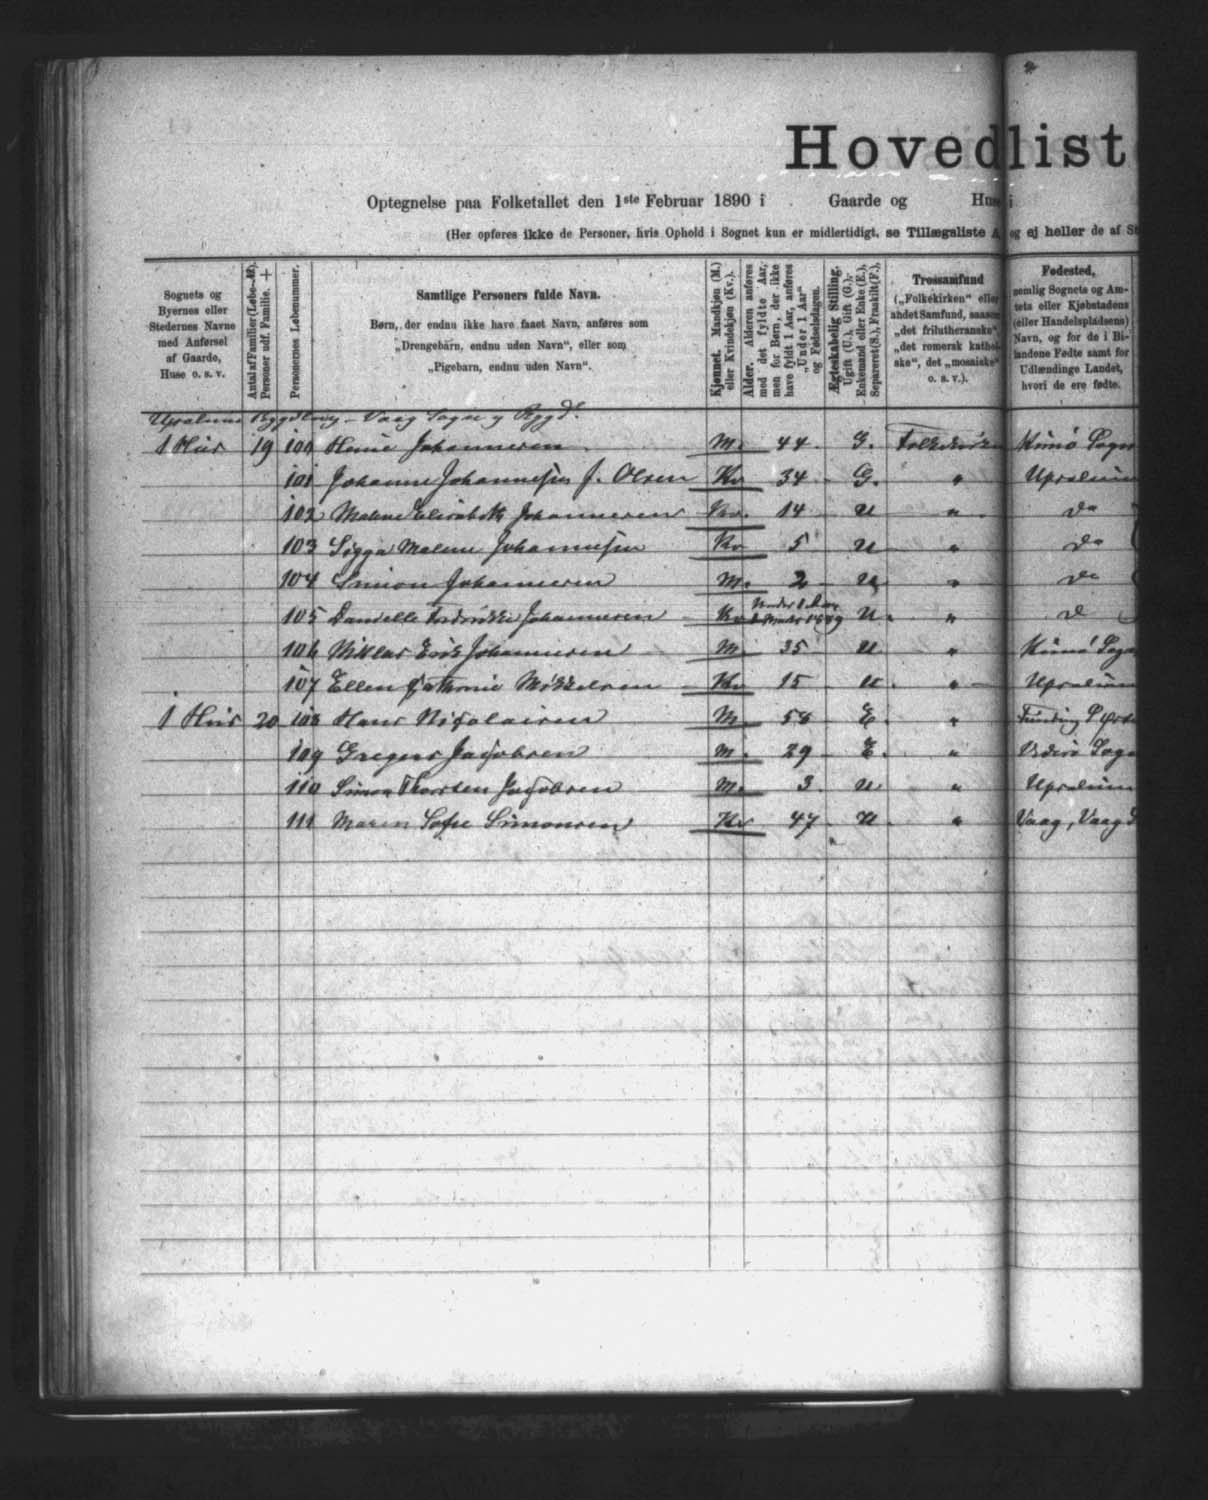 Hovedlist
Optegnelse paa Folketallet den 1ste Februar 1890 i Gaarde og Huse i
(Her opføres ikke de Personer, hvis Ophold i Sognet kun er midlertidigt, se Tillægsliste A, og ej heller de af St
Sognets og
Byernes eller
Stedernes Navne
med Anførsel
af Gaarde,
Huse o. s. v.
Antal af Familier (Løbe-№).
Personer udf. Familie. +
Personernes Løbenummer.
Samtlige Personers fulde Navn.
Børn, der endnu ikke have faaet Navn, anføres som
„Drengebarn, endnu uden Navn“, eller som
„Pigebarn, endnu uden Navn“.
Kjønnet. Mandkjøn (M.)
eller Kvindekjøn (Kv.).
Alder. Alderen anføres
med det fyldte Aar,
men for Børn, der ikke
have fyldt 1 Aar, anføres
„Under 1 Aar“
og Fødselsdagen.
Ægteskabelig Stilling.
Ugift (U.), Gift (G.),
Enkemand eller Enke (E.),
Separeret (S.), Fraskilt (F.),
Trossamfund
(„Folkekirken“ eller
andet Samfund, saasom
„det frilutheranske“,
„det romersk kathol
ske“, det „mosaiske“
o. s. v.).
Fødested,
nemlig Sognets og Am-
tets eller Kjøbstadens
(eller Handelspladsens)
Navn, og for de i Bi-
landene Fødte samt for
Udlændinge Landet,
hvori de ere fødte.
Vaag Sogn
1 Hus 19 100 Johannesen M. 44 G. Folkekirken Sogn
101 Johanne Johannesen f. Olsen Kv 34 G. "
102 Malene Elisabeth Johannesen Kv. 14 U " do
103 Sigga Malene Johannesen Kv 5 U " do
104 Simon Johannesen M. 2 U " do
105 Johannesen Kv Under 1 Aar U. " d
106 Niklas Erik Johannesen M. 35 U "
107 Ellen Mikkelsen Kv 15 U. "
1 Hus 20 108 Hans Nicolaisen M 58 E. "
109 Gregers Jacobsen M. 29 E. "
110 Simon Thorsten Jacobsen M. 3. U "
111 Maren Sofie Simonsen Kv 47 U. " Vaag, Vaag